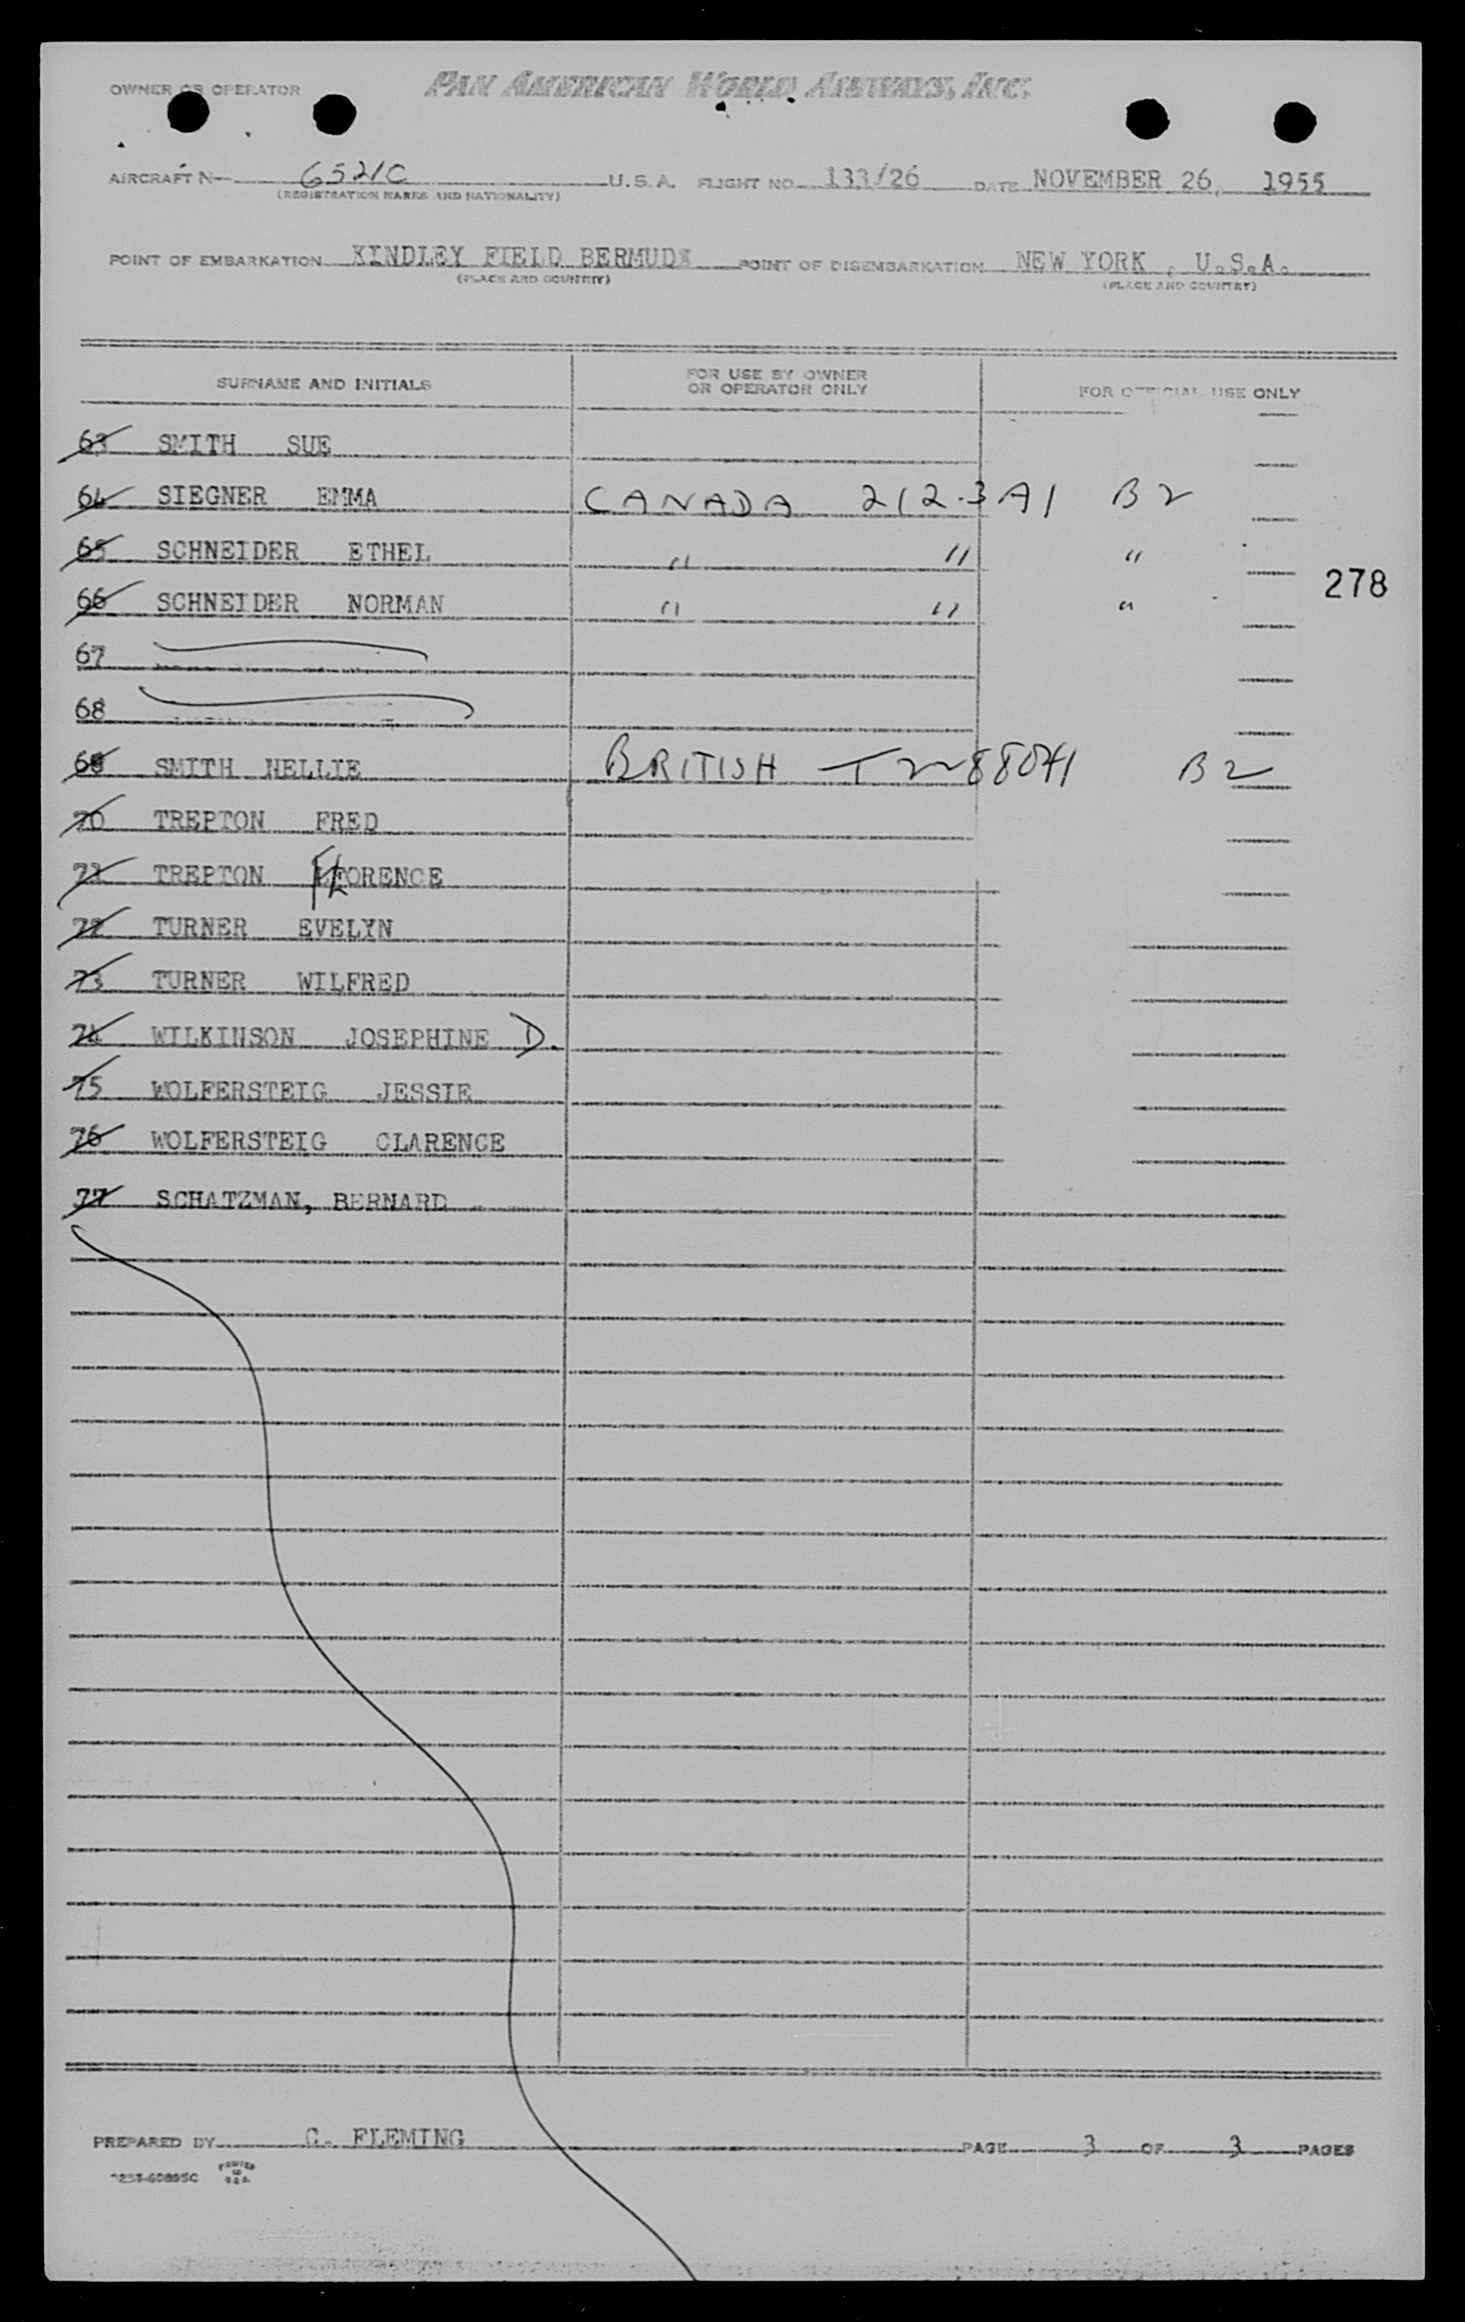 OWNER OR OPERATOR PAN AMERICAN WORLD AIRWAYS, INC.
AIRCRAFT N— 6521C U.S.A. FLIGHT NO. 133/26 DATE NOVEMBER 26, 1955
(REGISTRATION MARKS AND NATIONALITY)
POINT OF EMBARKATION KINDLEY FIELD BERMUDA POINT OF DISEMBARKATION NEW YORK , U.S.A.
(PLACE AND COUNTRY) (PLACE AND COUNTRY)
SURNAME AND INITIALS FOR USE BY OWNER OR OPERATOR ONLY FOR OFFICIAL USE ONLY
63 SMITH SUE
64 SIEGNER EMMA CANADA 212.3 A1 B2
65 SCHNEIDER ETHEL " " "
278
66 SCHNEIDER NORMAN " " "
67
68
69 SMITH NELLIE BRITISH B2
70 TREPTON FRED
71 TREPTON FLORENCE
72 TURNER EVELYN
73 TURNER WILFRED
74 WILKINSON JOSEPHINE D.
75 WOLFERSTEIG JESSIE
76 WOLFERSTEIG CLARENCE
77 SCHATZMAN, BERNARD
PREPARED BY C. FLEMING PAGE 3 OF 3 PAGES
PRINTED IN U.S.A.